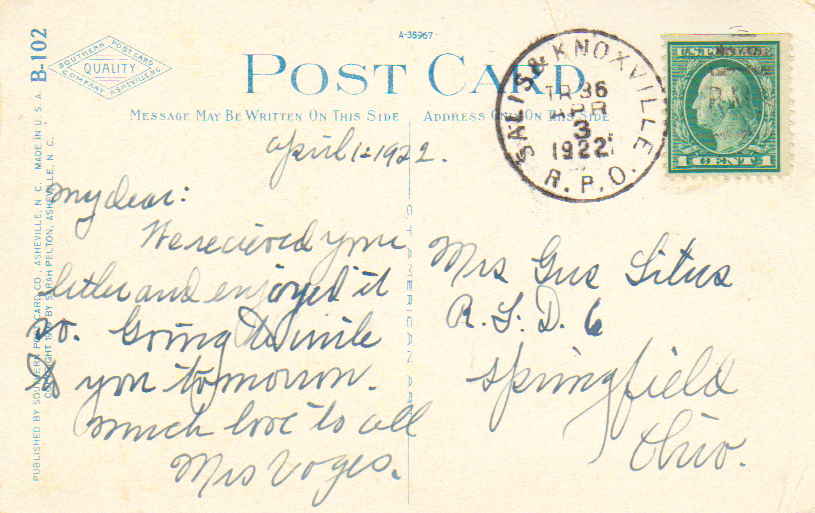 A-35967
B-102
SOUTHERN POST CARD
QUALITY
COMPANY ASHEVILLE N.C.
POST CARD
MESSAGE MAY BE WRITTEN ON THIS SIDE
ADDRESS ONLY ON THIS SIDE
SALIS & KNOXVILLE
TR 36
APR
3
1922
R.P.O.
U.S. POSTAGE
1 CENT 1
PUBLISHED BY SOUTHERN POST CARD CO., ASHEVILLE, N. C. MADE IN U. S. A.
BY SARAH PELTON, ASHEVILLE, N. C.
C.T. AMERICAN ART
April 1 1922.
My dear:
We recieved your
letter and enjoyed it
so. Going to write
you tomorrow.
Much love to all
Mrs Voges.
Mrs Gus Situs
R. F. D. 6
Springfield
Ohio.